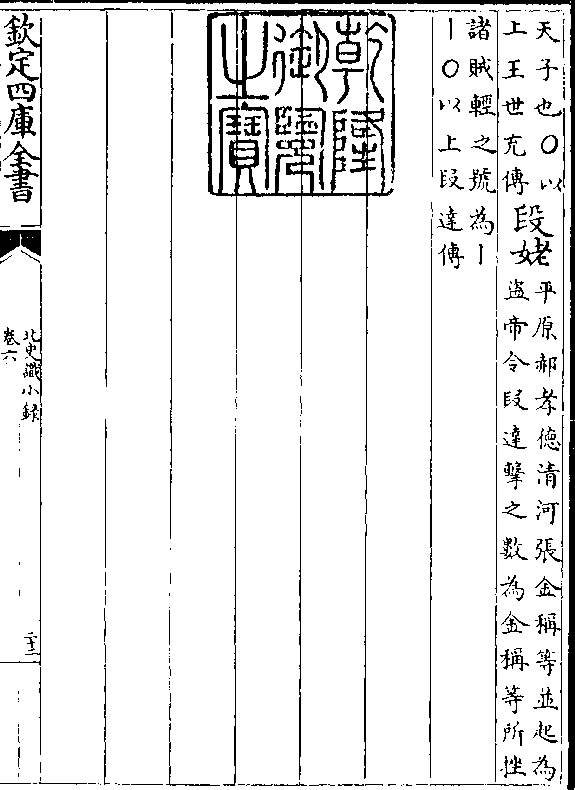 天子也〇以
上王世充傳
段姥
平原郝孝德清河張金稱等並起為
盜帝令段達擊之數為金稱等所挫
諸賊輕之號為丨
丨〇以上段達傳
乾隆
御覽
之寶
欽定四庫全書
北史識小錄
卷六
二十三